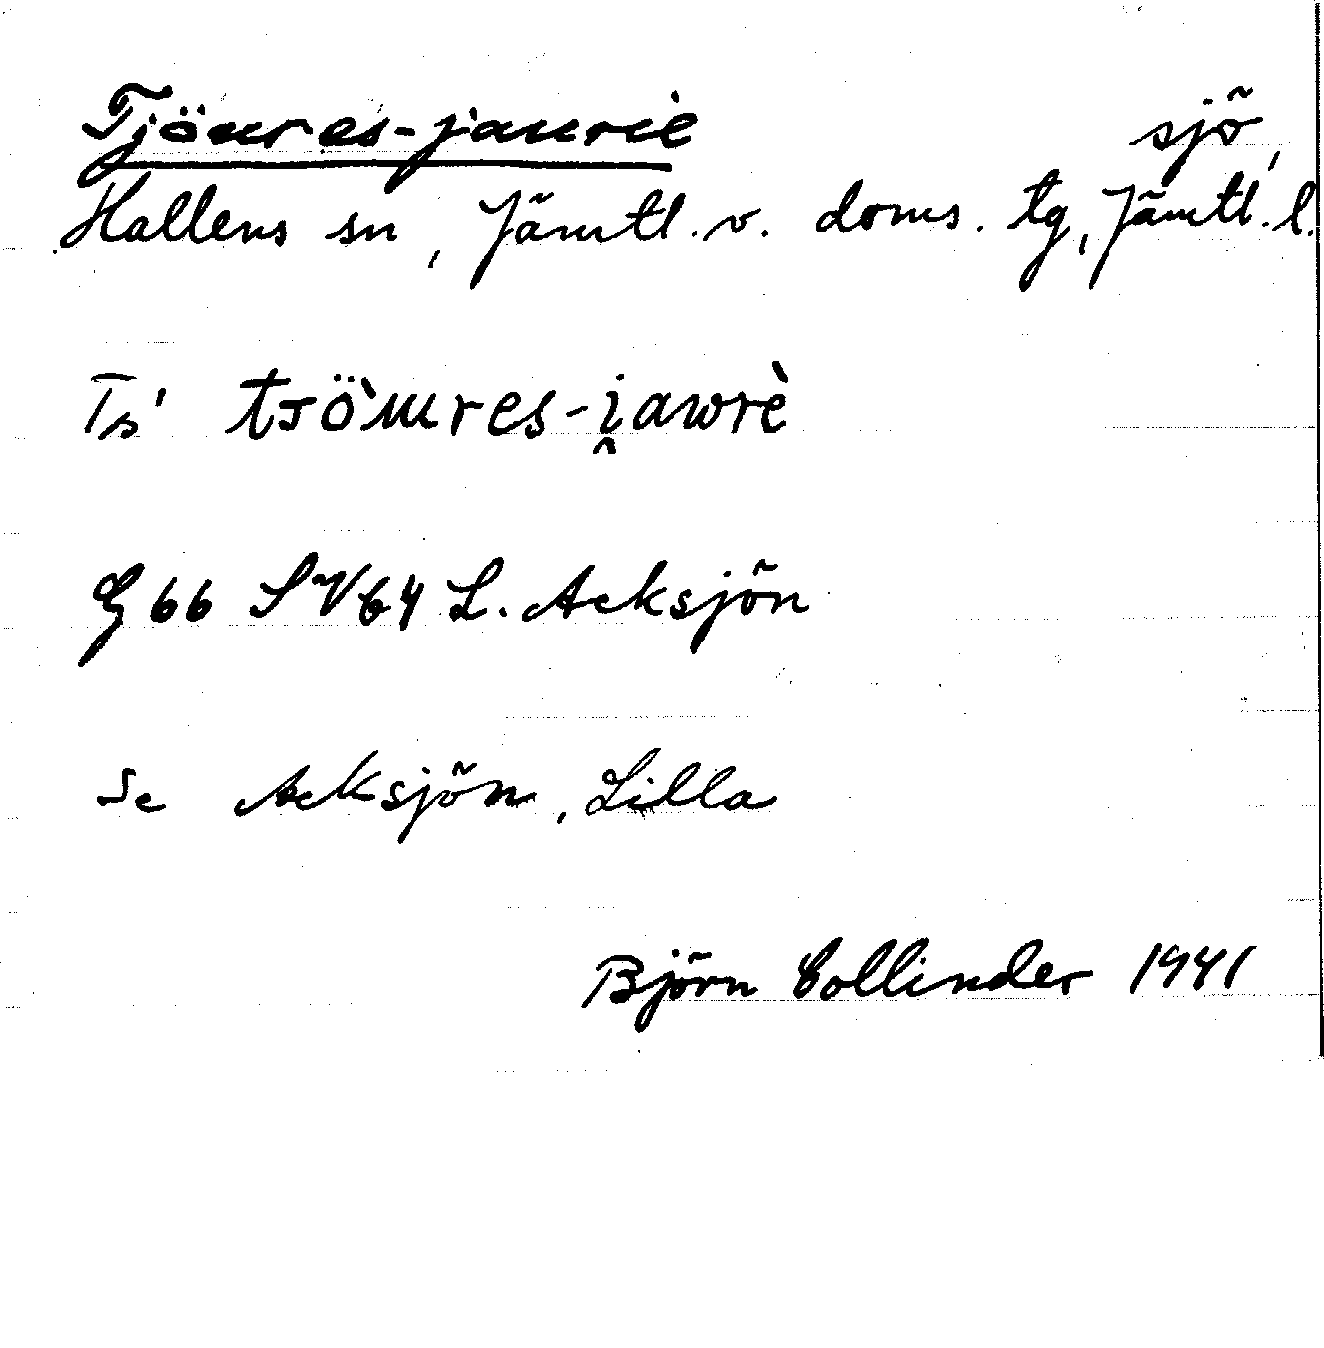 Tjöures-jaurie sjö,
Hallens sn, Jämtl. v. doms. tg, Jämtl. l.
G 66 SV 64 L. Acksjön
Se Acksjön, Lilla
Björn Collinder 1941